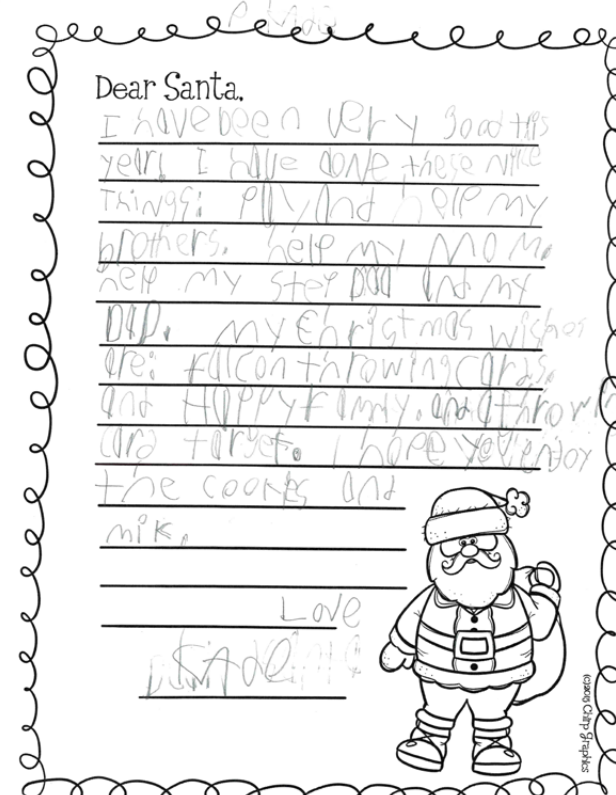 Dear Santa,
I have been very good this
year. I have done these nice
Things: Play And help my
brothers. help my Mom.
help my step DaD And my
DAD. My Christmas wishes
are: falcon throwing cards.
and Happy Family. and a throw
card target. I hope you enjoy
the cookies and
milk.
Love
KAde
(c)2015 Chirp Graphics